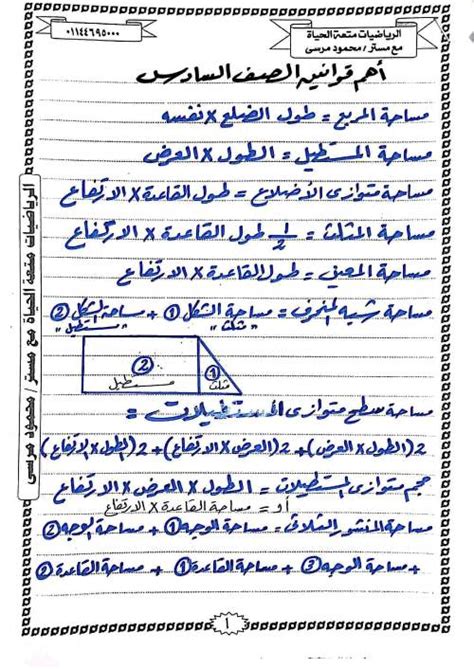 ٠١١٤٤٦٩٥٠٠٠
الرياضيات متعة الحياة
مع مستر / محمود مرسى
أهم قوانين الصف السادس
مساحة المربع = طول الضلع × نفسه
مساحة المستطيل = الطول × العرض
مساحة متوازى الأضلاع = طول القاعدة × الارتفاع
مساحة المثلث = ½ طول القاعدة × الارتفاع
مساحة المعين = طول القاعدة × الارتفاع
مساحة شبه المنحرف = مساحة الشكل ① + مساحة الشكل ②
"مثلث" "مستطيل"
② ①
مستطيل مثلث
مساحة سطح متوازى المستطيلات =
2(الطول × العرض) + 2(العرض × الارتفاع) + 2(الطول × الارتفاع)
حجم متوازى المستطيلات = الطول × العرض × الارتفاع
أو = مساحة القاعدة × الارتفاع
مساحة المنشور الثلاثى = مساحة الوجه ① + مساحة الوجه ②
+ مساحة الوجه ③ + مساحة القاعدة ① + مساحة القاعدة ②
الرياضيات متعة الحياة مع مستر / محمود مرسى
١